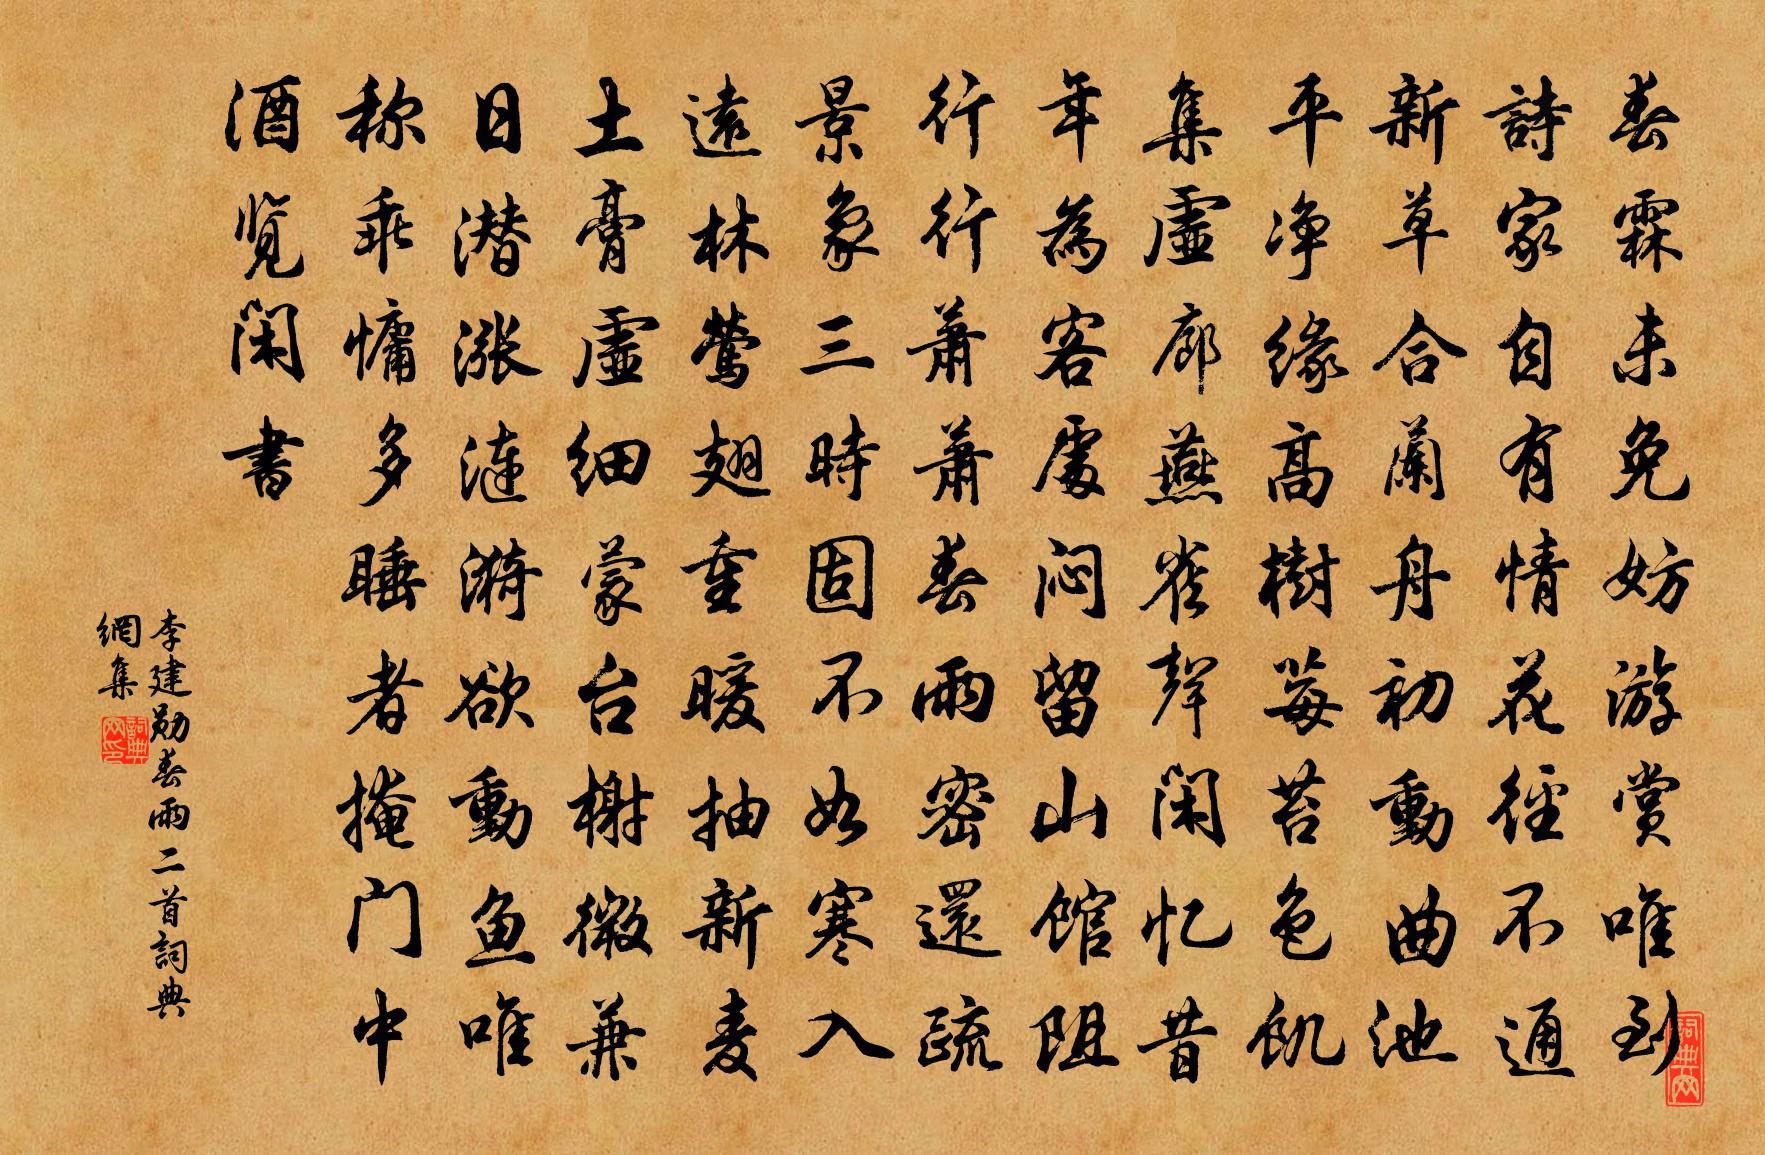 春霖未免妨游赏唯到
詩家自有情花径不通
新草合蘭舟初動曲池
平净缘高樹莓苔色饥
集虚廊燕雀聲闲忆昔
年為客處闷留山馆阻
行行萧萧春雨密還疏
景象三時固不如寒入
遠林莺翅重暖抽新麦
土膏虚细蒙台榭微兼
日潜漲涟漪欲動鱼唯
称乖慵多睡者掩门中
酒览闲書
李建勋春雨二首詞典
網集
詞典网
詞典网印